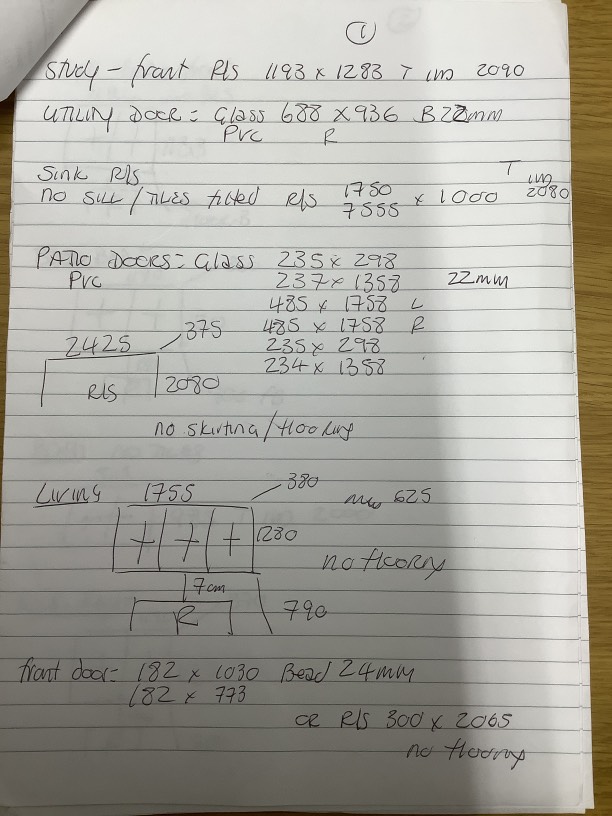 1
Study - front R/s 1193 x 1283 T 2090
UTILITY DOOR = Glass 688 x 936 B 22mm
PVC R
Sink R/s T
no SILL / TILES fitted R/s 1750 x 1000 2080
7555
PATIO DOORS = Glass 235 x 298
PVC 237 x 1358 22mm
485 x 1758 L
375 485 x 1758 R
2425 235 x 298
R/s 2080 234 x 1358
no skirting / flooring
LIVING 1755 380 625
1280
no floorng
7cm
R 790
front door = 182 x 1030 Bead 24mm
182 x 773
OR R/s 300 x 2065
no floorng